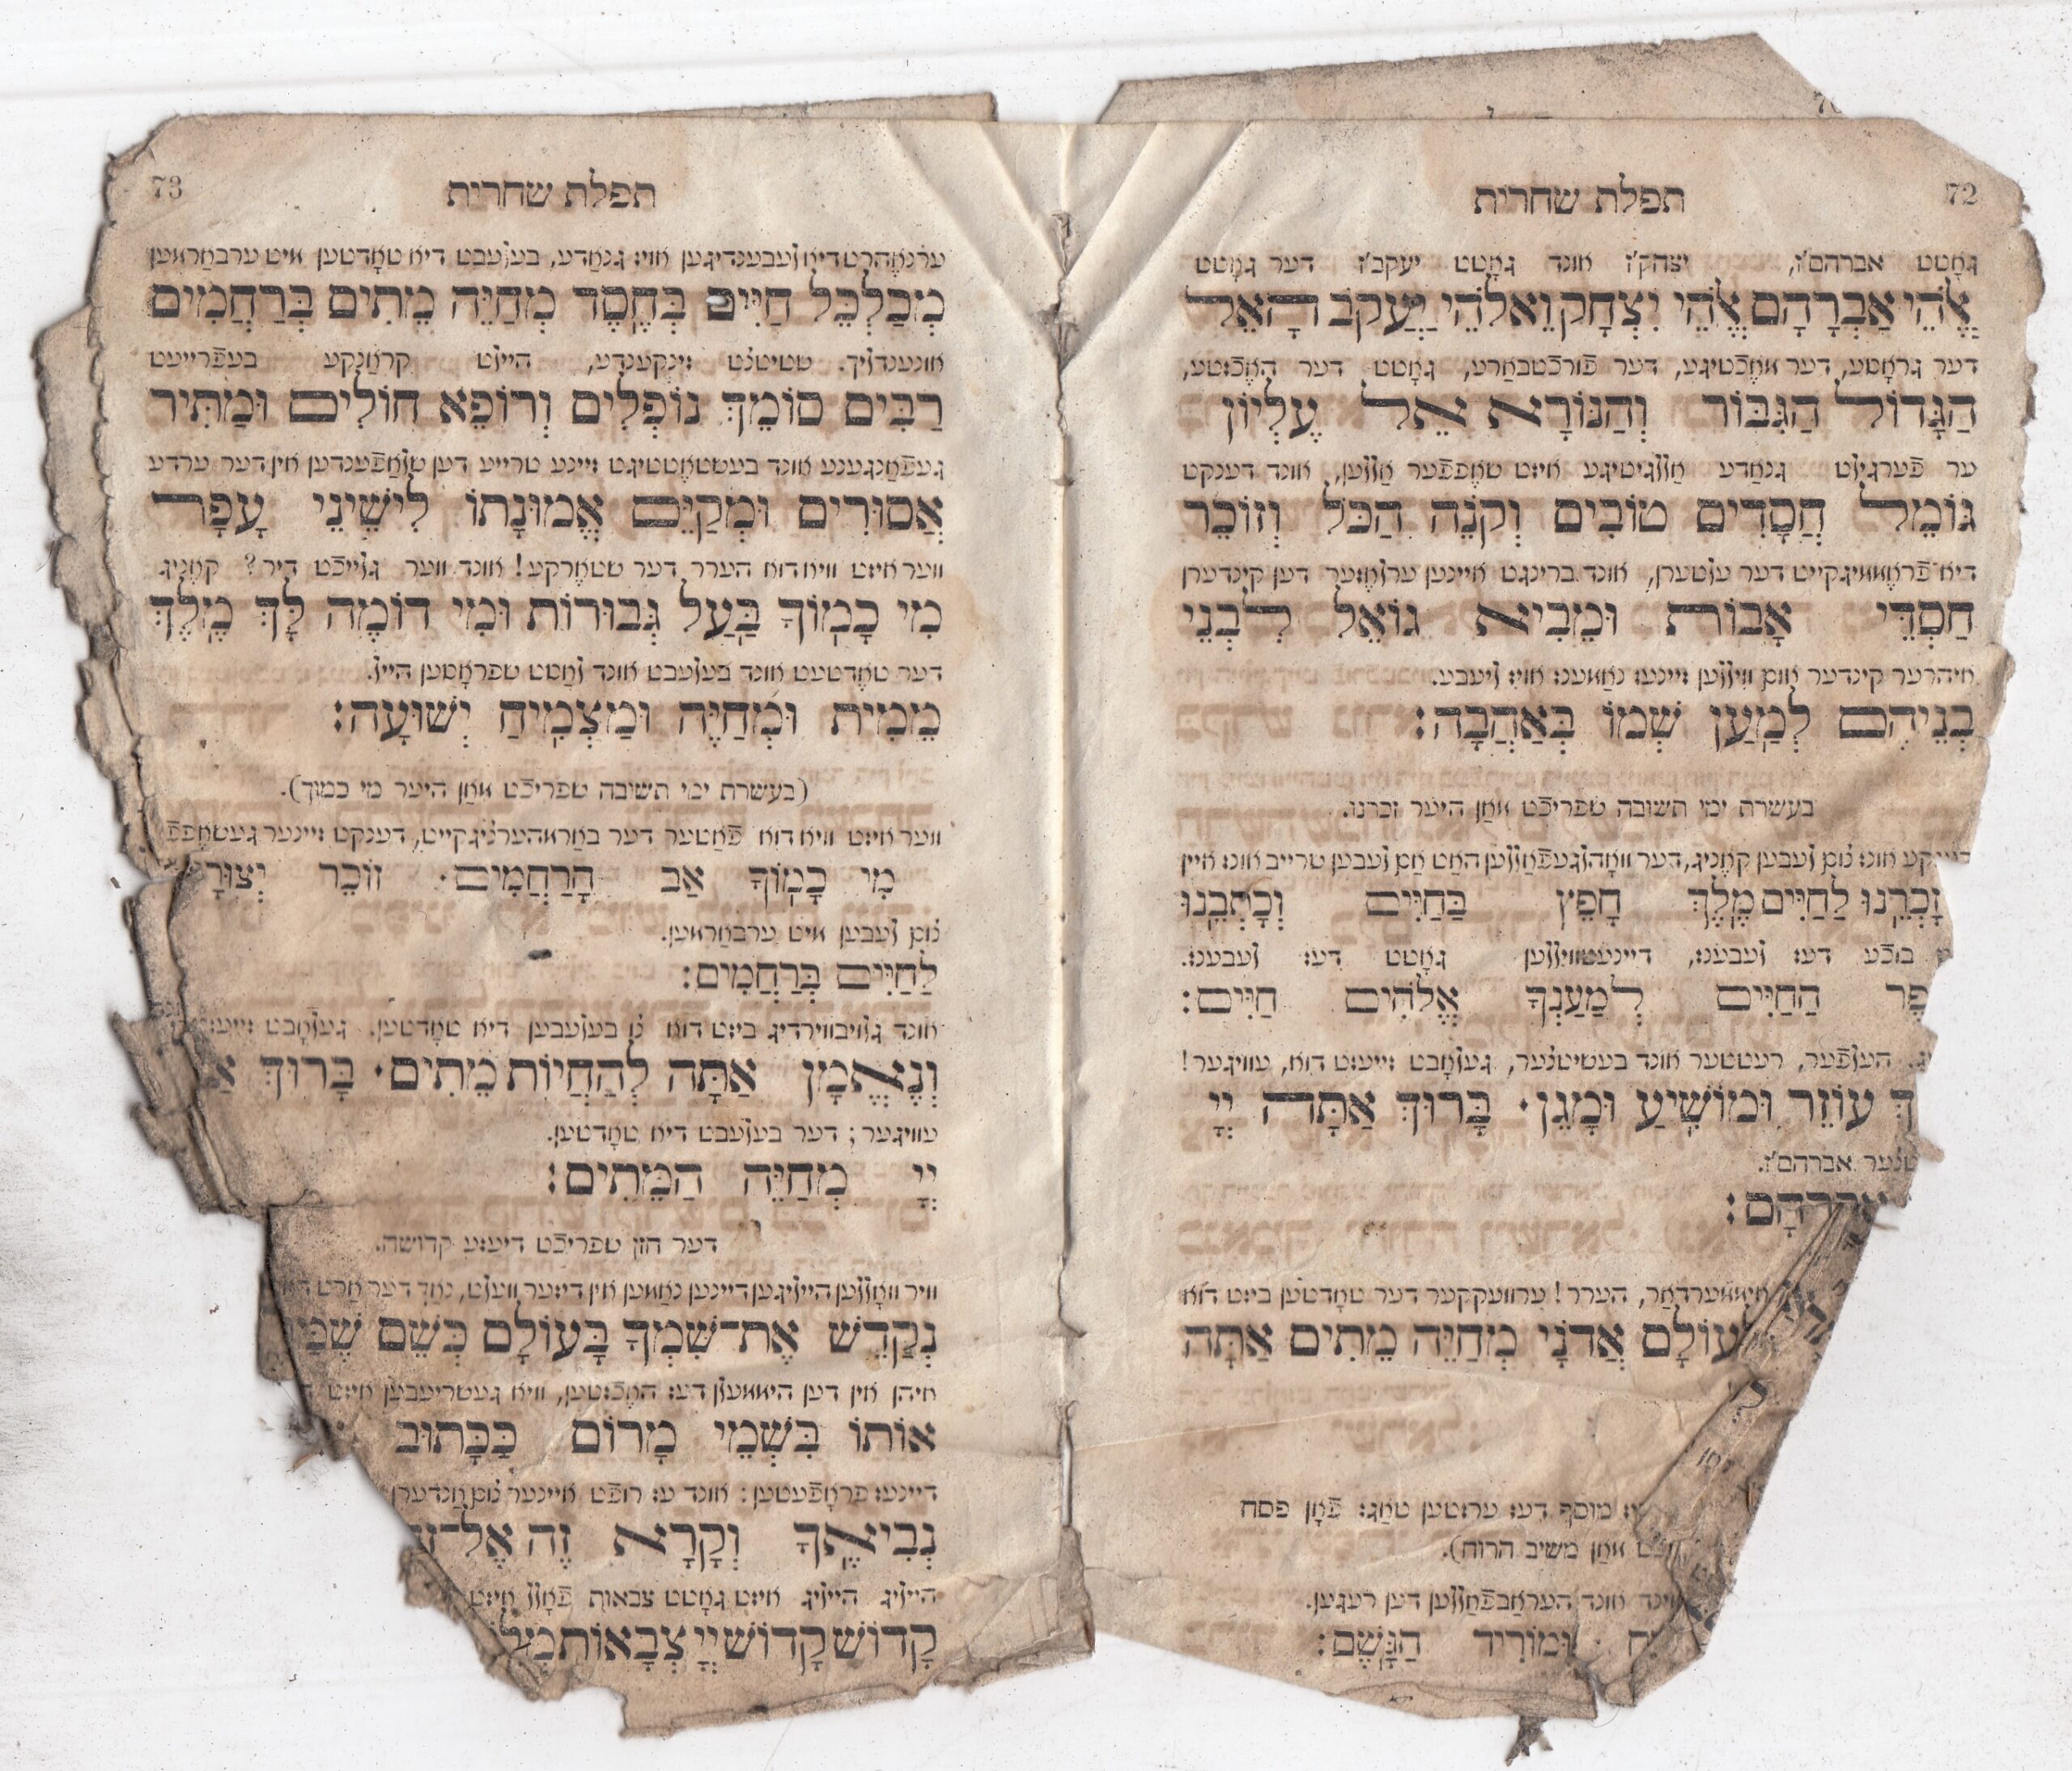 72
תפלת שחרית
גאָטט אברהם'ז, יצחק'ז אונד גאָטט יעקב'ז דער גאָטט
אֱלֹהֵי אַבְרָהָם אֱלֹהֵי יִצְחָק וֵאלֹהֵי יַעֲקֹב הָאֵל
דער גראָסע, דער מאֶכֿטיגע, דער פֿורכֿטבאַרע, גאָטט דער האֶכֿסטע,
הַגָּדוֹל הַגִּבּוֹר וְהַנּוֹרָא אֵל עֶלְיוֹן
ער פֿערגילט גנאַדע אַללגיטיגע איסט שאֶפפֿער אַללעס, אונד דענקט
גּוֹמֵל חֲסָדִים טוֹבִים וְקֹנֵה הַכֹּל וְזוֹכֵר
דיא פֿראָממיגקייט דער עלטערן, אונד ברינגט איינען ערלאֶזער דען קינדערן
חַסְדֵּי אָבוֹת וּמֵבִיא גוֹאֵל לִבְנֵי
איהרער קינדער אום וויללען זיינעס נאַמענס אויס ליעבע.
בְנֵיהֶם לְמַעַן שְׁמוֹ בְּאַהֲבָה:
בעשרת ימי תשובה שפריכֿט מאַן היער זכרנו.
אונס צום לעבען קאֶניג, דער וואָהלגעפֿאַללען האַט אַם לעבען שרייב אונס איין
זָכְרֵנוּ לַחַיִּים מֶלֶךְ חָפֵץ בַּחַיִּים וְכָתְבֵנוּ
בוכֿע דעס לעבענס, דיינעטוויללען גאָטט דעס לעבענס.
פֶר הַחַיִּים לְמַעַנְךָ אֱלֹהִים חַיִּים:
העלפֿער, רעטטער אונד בעשיטצער, געלאָבט זייעסט דוא, עוויגער!
ךְ עוֹזֵר וּמוֹשִׁיעַ וּמָגֵן· בָּרוּךְ אַתָּה יְיָ
אברהם'ז.
אַבְרָהָם:
הערר! ערוועקקער דער טאָדטען ביסט דוא
לְעוֹלָם אֲדֹנָי מְחַיֵּה מֵתִים אַתָּה
מוסף דעס ערסטען טאַגס פֿאָן פסח
מאַן משיב הרוח).
אונד העראַבפֿאַללען דען רעגען.
וּמוֹרִיד הַגָּשֶׁם:
73
תפלת שחרית
ערנאֶהרט דיא לעבענדיגען אויס גנאַדע, בעלעבט דיא טאָדטען מיט ערבאַרמען
מְכַלְכֵּל חַיִּים בְּחֶסֶד מְחַיֵּה מֵתִים בְּרַחֲמִים
אונענדליך. שטיטצט זינקענדע, היילט קראַנקע בעפֿרייעט
רַבִּים סוֹמֵךְ נוֹפְלִים וְרוֹפֵא חוֹלִים וּמַתִּיר
געפֿאַנגענע אונד בעשטאֶטטיגט זיינע טרייע דען שלאַפֿענדען אין דער ערדע
אֲסוּרִים וּמְקַיֵּם אֱמוּנָתוֹ לִישֵׁינֵי עָפָר
ווער איסט וויא דוא הערר דער שטאֶרקע! אונד ווער גלייכֿט דיר? קאֶניג
מִי כָמוֹךָ בַּעַל גְּבוּרוֹת וּמִי דוֹמֶה לָּךְ מֶלֶךְ
דער טאֶדטעט אונד בעלעבט אונד לאַסט שפראָסען הייל.
מֵמִית וּמְחַיֶּה וּמַצְמִיחַ יְשׁוּעָה:
(בעשרת ימי תשובה שפריכֿט מאַן היער מי כמוך).
ווער איסט וויא דוא פֿאַטער דער באַרמהערציגקייט, דענקט זיינער געשאֶפפֿ
מִי כָמוֹךָ אַב הָרַחֲמִים· זוֹכֵר יְצוּרָ
צום לעבען מיט ערבאַרמען.
לַחַיִּים בְּרַחֲמִים:
אונד גלויבווירדיג ביסט דוא צו בעלעבען דיא טאָדטען. געלאָבט זייעסט
וְנֶאֱמָן אַתָּה לְהַחֲיוֹת מֵתִים· בָּרוּךְ אַ
עוויגער; דער בעלעבט דיא טאָדטען.
יְיָ מְחַיֵּה הַמֵּתִים:
דער חזן שפריכֿט דיעזע קדושה.
וויר וואָללען הייליגען דיינען נאַמען אין דיזער וועלט, נאַך דער אַרט
נְקַדֵּשׁ אֶת־שִׁמְךָ בָּעוֹלָם כְּשֵׁם שֶׁמַּ
איהן אין דען היממעלן דעס האֶכֿסטען, וויא געשריעבען איסט
אוֹתוֹ בִּשְׁמֵי מָרוֹם כַּכָּתוּב
דיינעס פראָפֿעטען: אונד עס רופֿט איינער צום אַנדערן
נְבִיאֶךָ וְקָרָא זֶה אֶל־זֶה
הייליג הייליג איסט גאָטט צבאות פֿאָלל איסט
קָדוֹשׁ קָדוֹשׁ יְיָ צְבָאוֹת מְלֹ